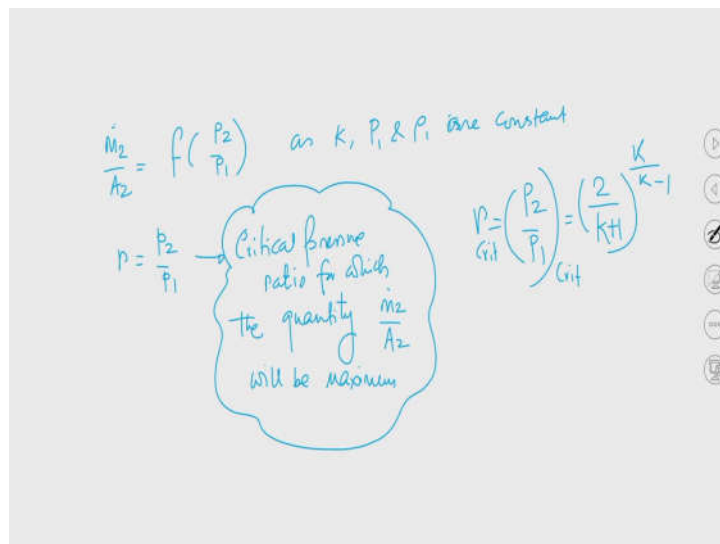 ṁ₂/A₂ = f(P₂/P₁) as K, P₁ & ρ₁ are constant
r = P₂/P₁ → Critical pressure
ratio for which
the quantity ṁ₂/A₂
will be maximum
r_crit = (P₂/P₁)_crit = (2/(k+1))^(K/(K-1))